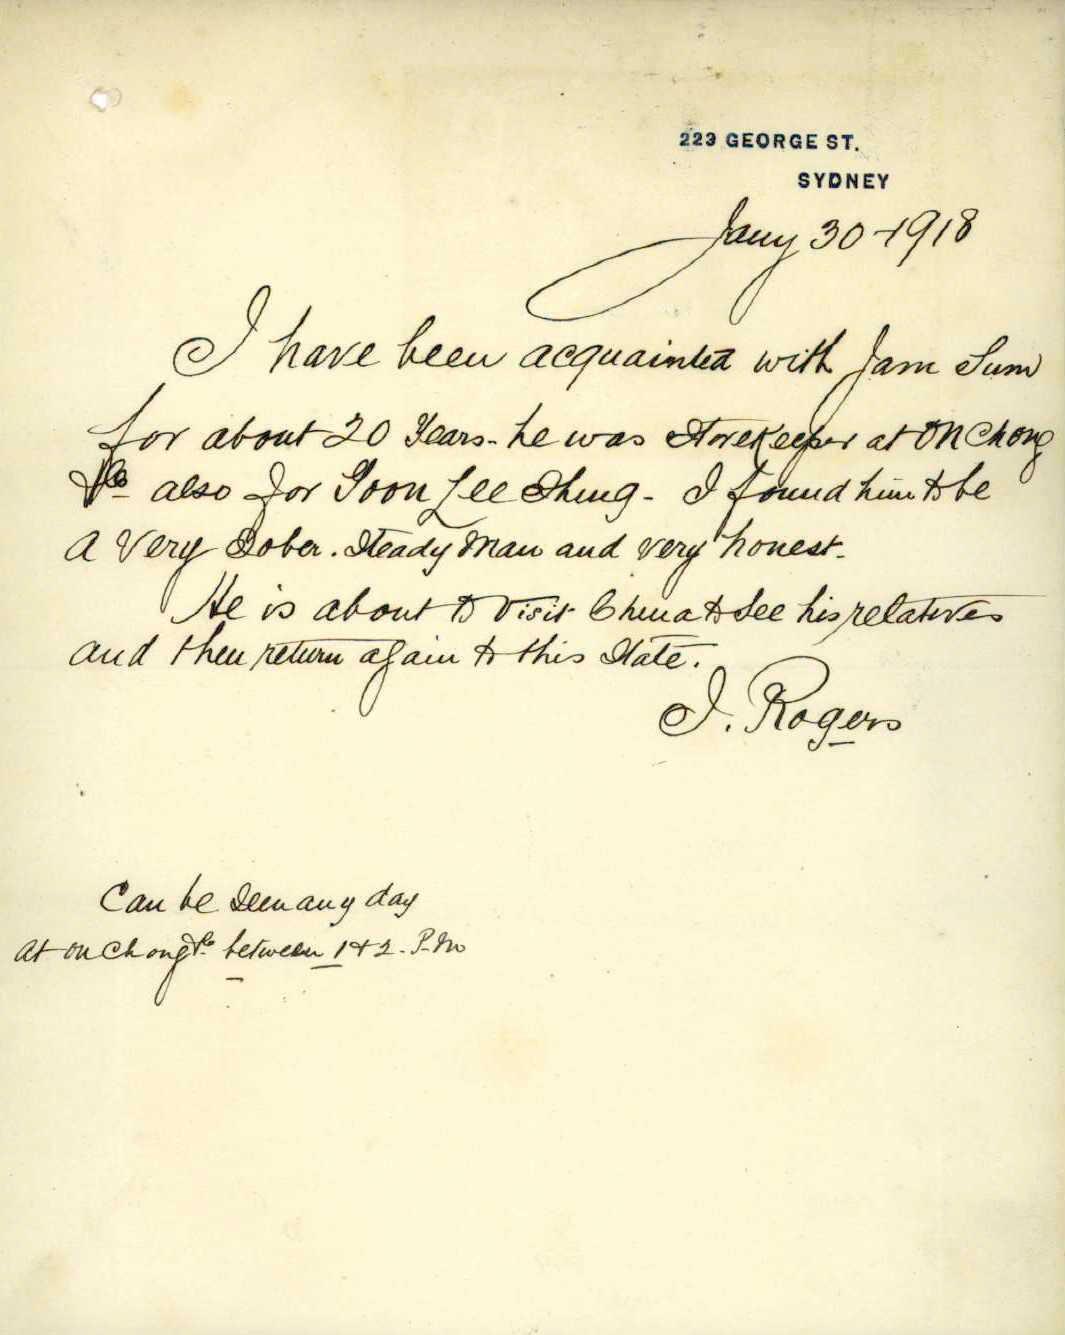 223 GEORGE ST.
SYDNEY
Jany 30-1918
I have been acquainted with Jam Sum
for about 20 Years- he was Storekeeper at On Chong
& Co also for Goon Lee Shing- I found him to be
a Very Sober. Steady Man and very honest-
He is about to Visit China to See his relatives
and then return again to this State.
J. Rogers
Can be Seen any day
at On Chong & Co between 1 & 2 - P-M